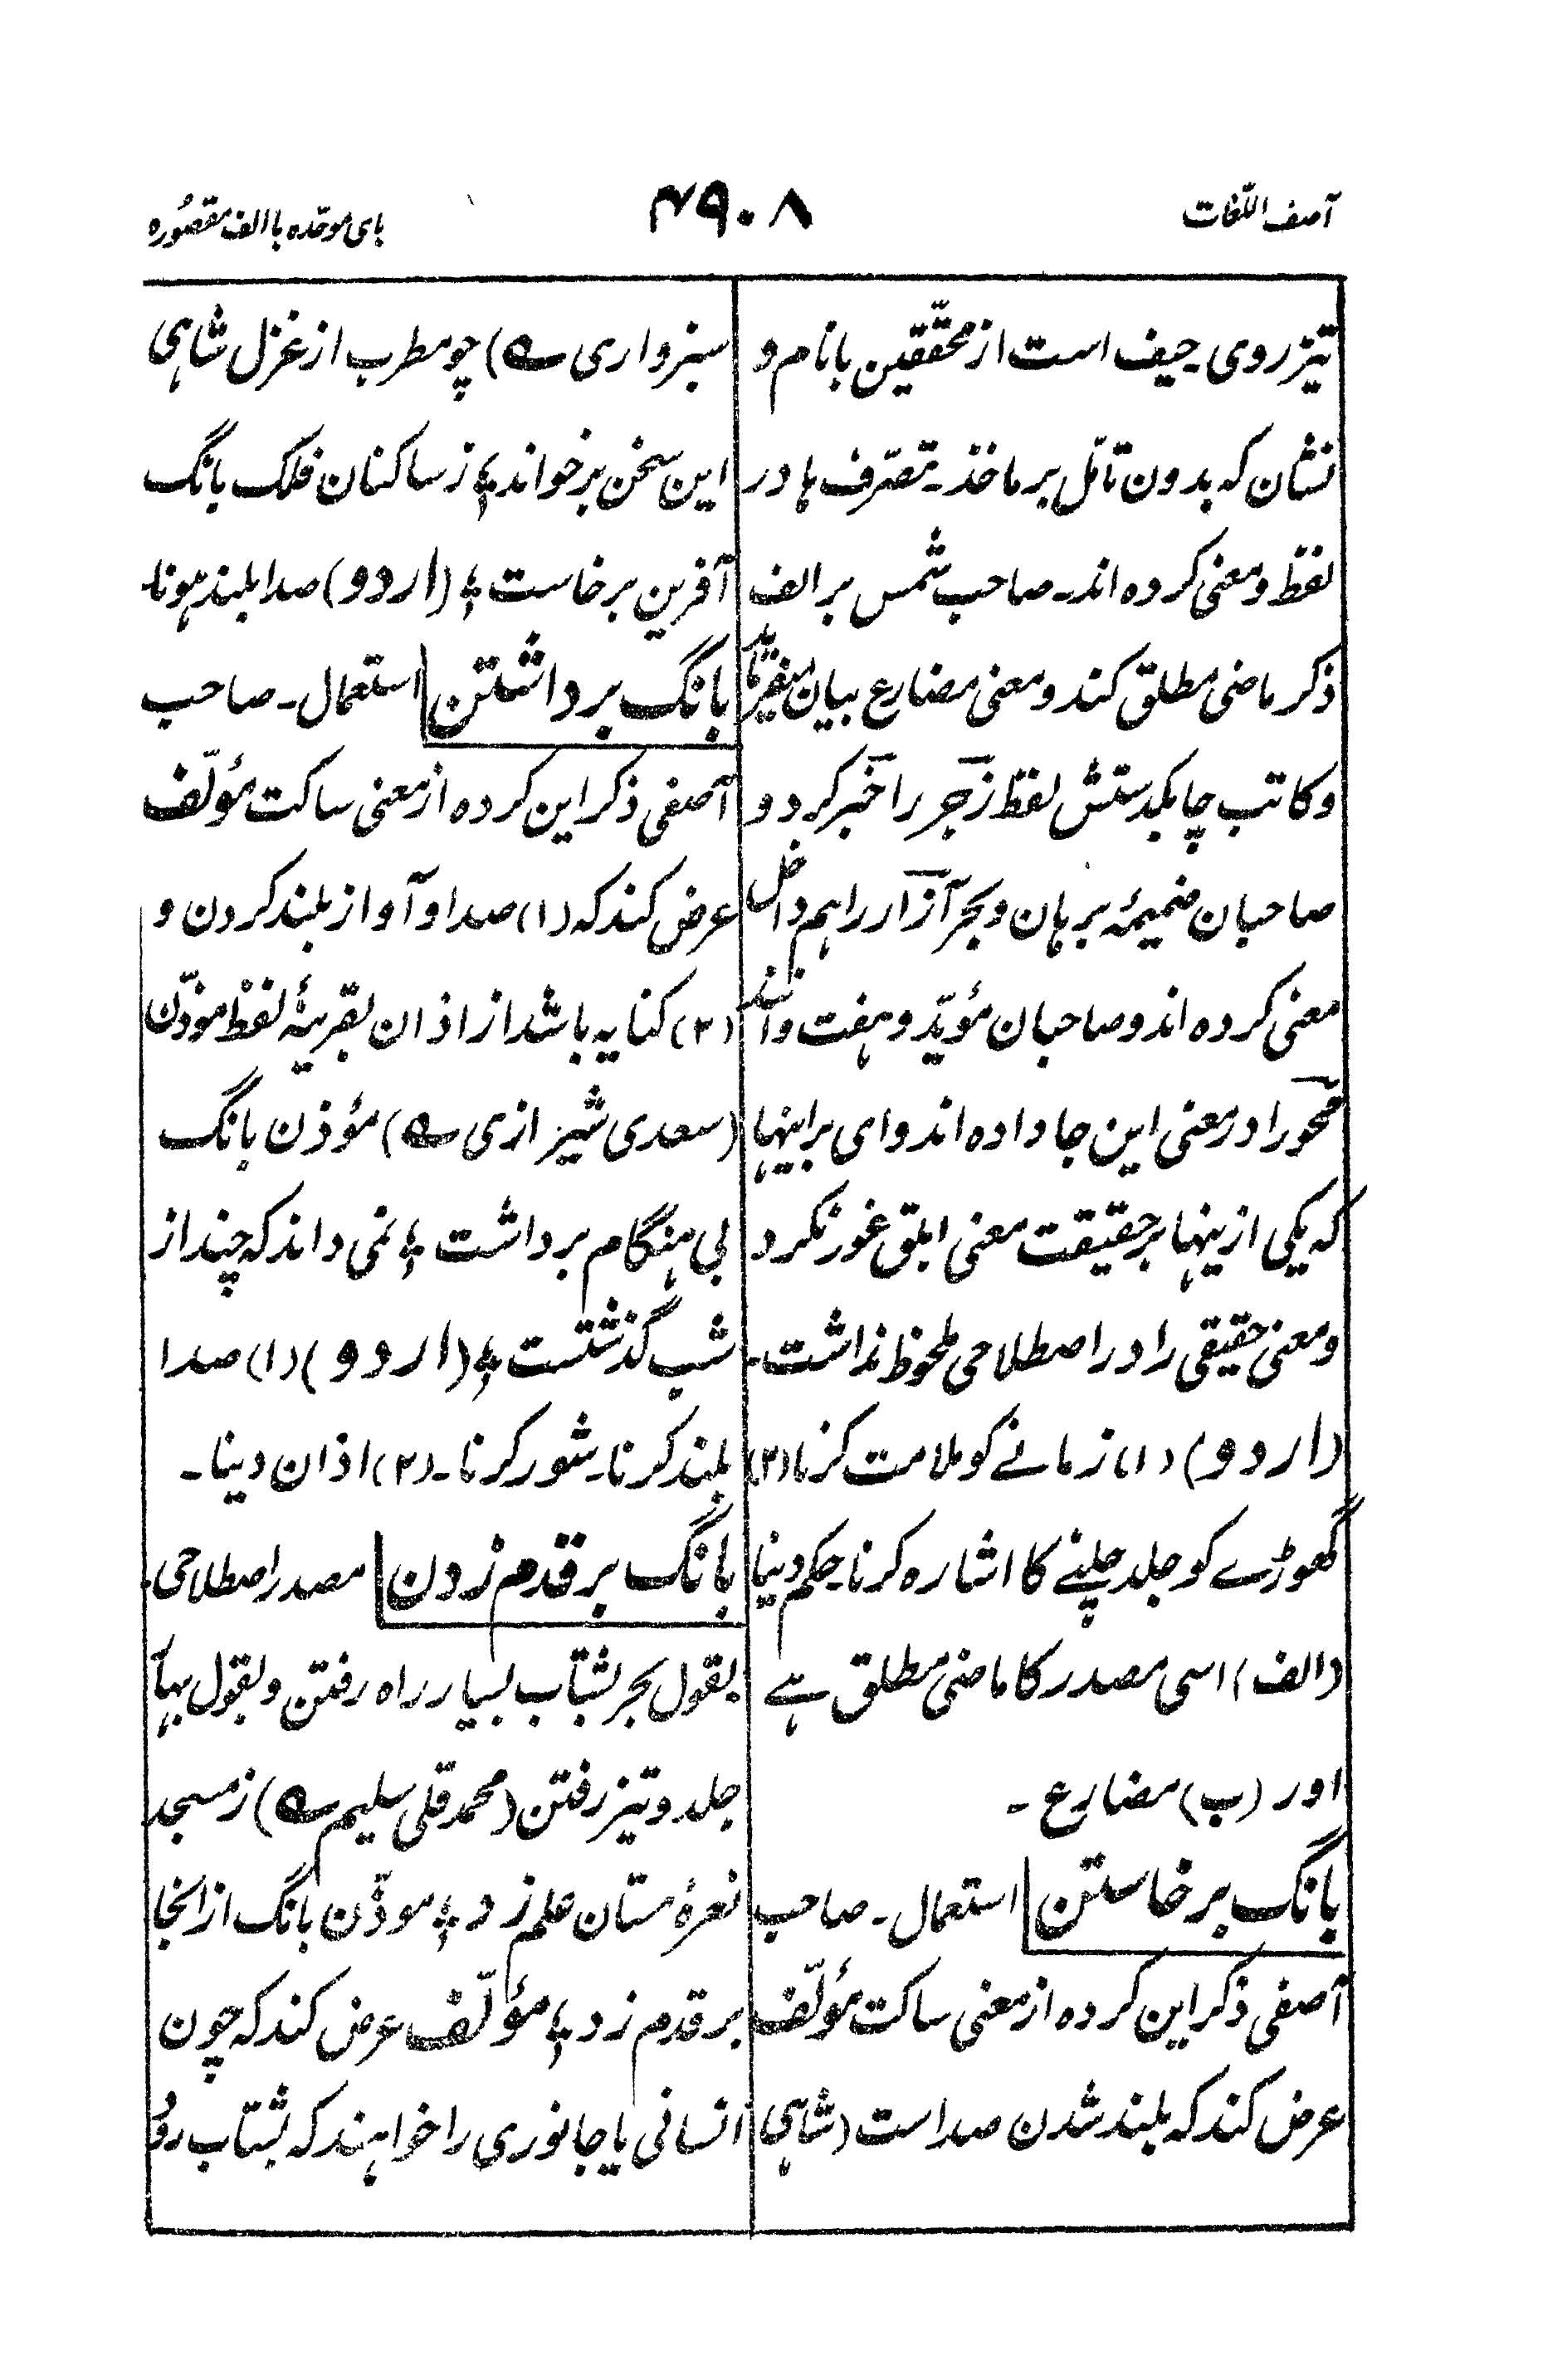 آصف اللّغات
۴۹۰۸
بای موحّده با الف مقصُوره
تیز روی ۔ حیف است از محقّقین با نام و
نشان که بدون تامّل بر ماخذ ۔ تصرّف ها در
لفظ و معنی کرده اند ۔ صاحب شمس بر الف
ذکر ماضی مطلق کند و معنی مضارع بیان میفرماید
و کاتب چابکدستش لفظ زجر را خبر کرد و
صاحبان ضمیمهٔ برهان و بحر آزار را هم داخل
معنی کرده اند و صاحبان مؤیّد و هفت و انند
محور را در معنی این جا داده اند وای بر اینها
که یکی از ینها بر حقیقت معنی ابلق غور نکرد
و معنی حقیقی را در اصطلاحی ملحوظ نداشت ۔
(اردو) (۱) زمانے کو ملامت کرنا (۲)
گھوڑے کو جلد چلنے کا اشارہ کرنا ۔ حکم دینا
(الف) اسی مصدر کا ماضی مطلق ہے
اور (ب) مضارع ۔
بانگ برخاستن استعمال ۔ صاحب
آصفی ذکر این کرده از معنی ساکت مؤلّف
عرض کند که بلند شدن صداست (شاهی
سبزواری ؎) چو مطرب از غزل شاهی
این سخن برخواند ؛ ز ساکنان فلک بانگ
آفرین برخاست ؛ (اردو) صدا بلند ہونا ۔
بانگ برداشتن استعمال ۔ صاحب
آصفی ذکر این کرده از معنی ساکت مؤلّف
عرض کند که (۱) صدا و آواز بلند کردن و
(۲) کنایه باشد از اذان بقرینهٔ لفظ موذّن
(سعدی شیرازی ؎) مؤذن بانگ
بی هنگام برداشت ؛ نمی داند که چند از
شب گذشتست ؛ (اردو) (۱) صدا
بلند کرنا ۔ شور کرنا ۔ (۲) اذان دینا ۔
بانگ بر قدم زدن مصدر اصطلاحی ۔
بقول بحر بشتاب بسیار راه رفتن و بقول بهار
جلد و تیز رفتن (محمد قلی سلیم ؎) ز مسجد
نعرهٔ مستان علم زد ؛ موذّن بانگ از انجا
بر قدم زد ؛ مؤلّف عرض کند که چون
انسانی یا جانوری را خواهند که بشتاب رود